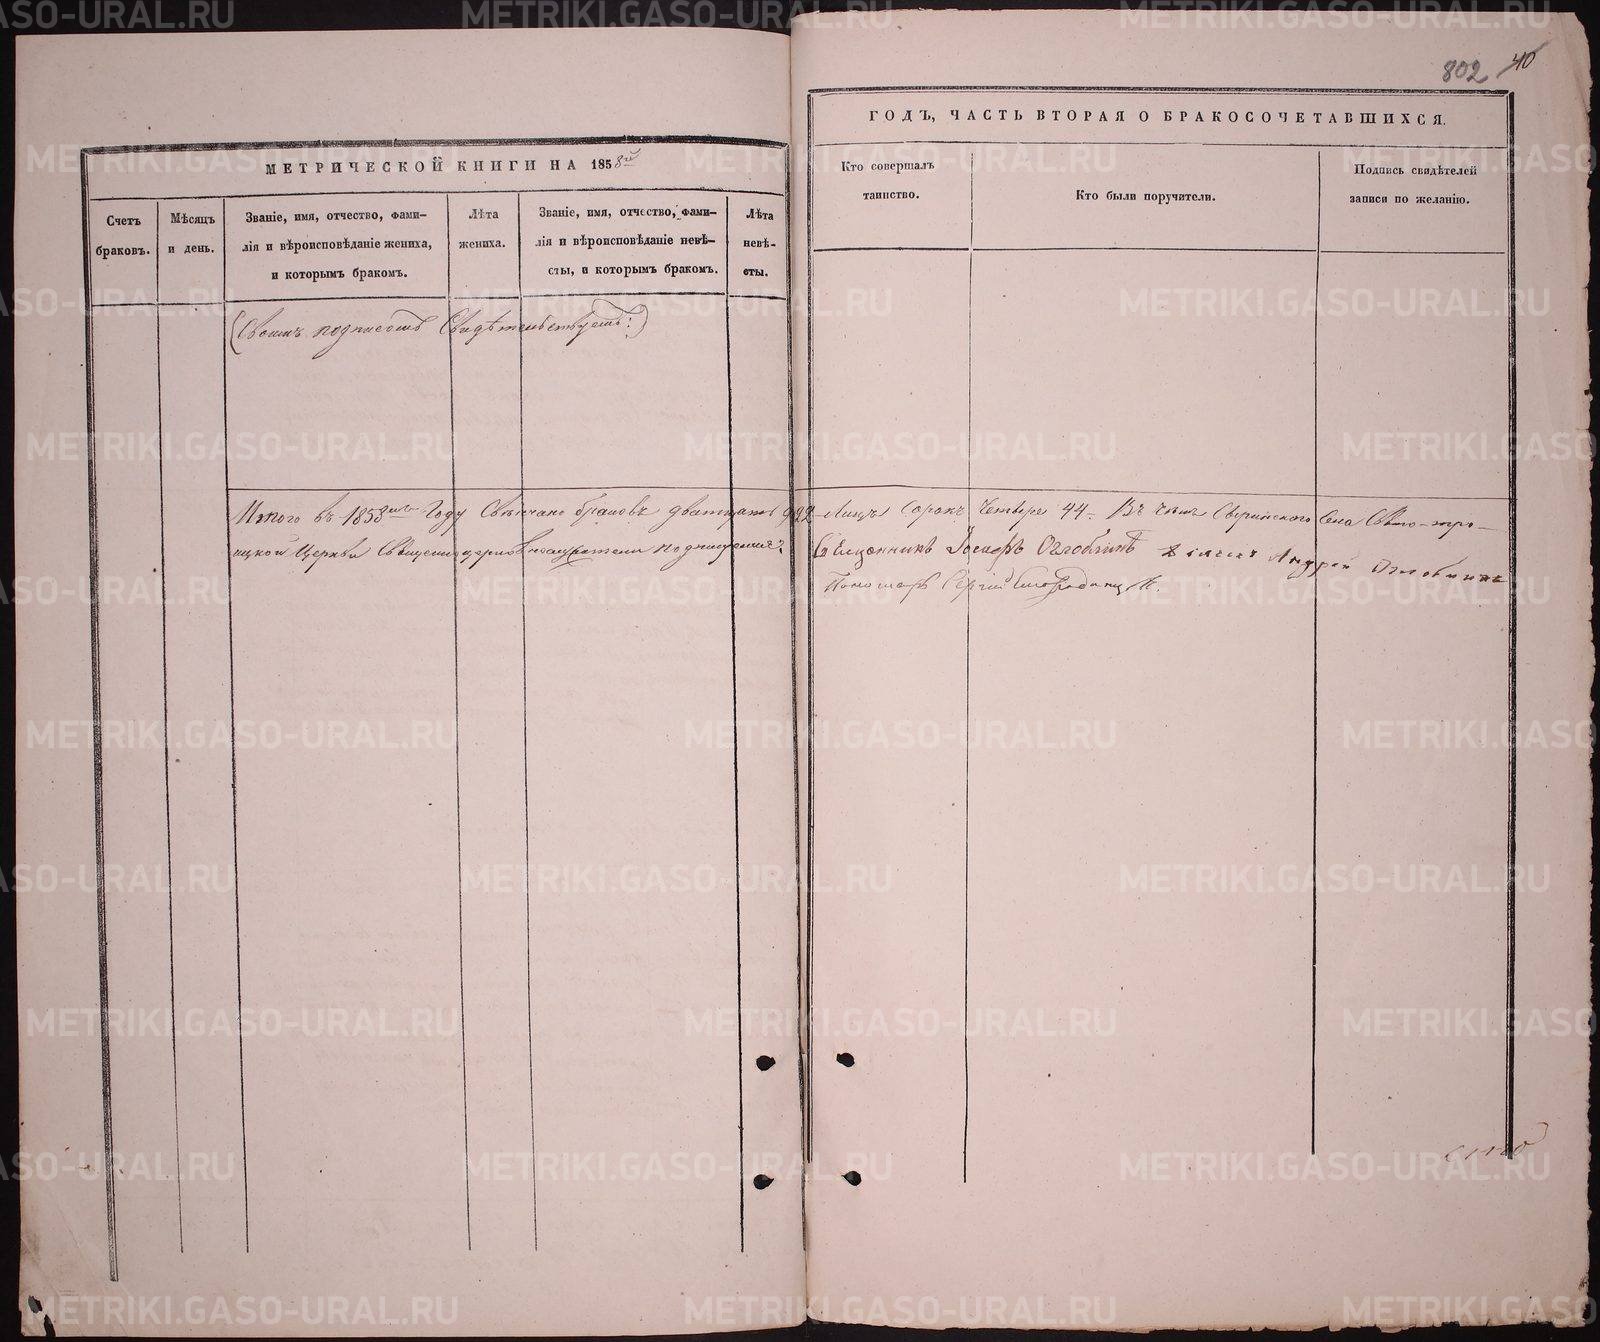 802 40
МЕТРИЧЕСКОЙ КНИГИ НА 1858й
ГОДЪ, ЧАСТЬ ВТОРАЯ О БРАКОСОЧЕТАВШИХСЯ.
Счетъ браковъ.
Мѣсяцъ и день.
Званіе, имя, отчество, фами-
лія и вѣроисповѣданіе жениха,
и которымъ бракомъ.
Лѣта жениха.
Званіе, имя, отчество, фами-
лія и вѣроисповѣданіе невѣ-
сты, и которымъ бракомъ.
Лѣта невѣ-
сты.
Кто совершалъ
таинство.
Кто были поручители.
Подпись свидѣтелей
записи по желанію.
(Своимъ подписомъ Свидѣтельствуемъ:)
Итого въ 1858мъ Году Свѣнчано браковъ дватцать два 22 Лицъ Сорокъ Четверо 44. Въ чемъ Сев Села Свято-тро-
ицкой Церкви Священноцерковнослужители подписуемся:
Священникъ Іосифъ Оглоблинъ Андрей Оглоблинъ
Пономарь Сергій Смородинцевъ
METRIKI.GASO-URAL.RU